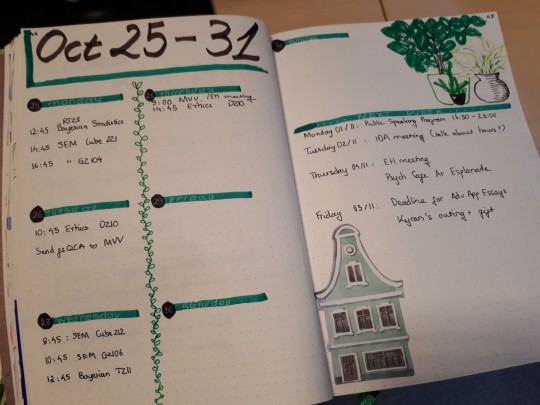 Oct 25-31
25 monday
RT23
12:45 Bayesian Statistics
14:45 SEM Cube 221
16:45 " G2104
26 tuesday
10:45 Ethics DZ10
Send QCA to MVV
27 wednesday
8:45 : SEM Cube 212
10:45 SRM G2106
12:45 Bayesian TZ11
thursday
9:00 MVV /EH meeting
14:45 Ethics DZ10
29 friday
30 saturday
sunday
NEXT
Monday 01/11: Public Speaking Program 16:30 - 21:00
Tuesday 02/11: IDA meeting (talk about hours?)
Thursday 04/11: EH meeting
Psych Cafe At Esplanade
Friday 05/11: Deadline for Adv App Essays
Kyran's outing + gift